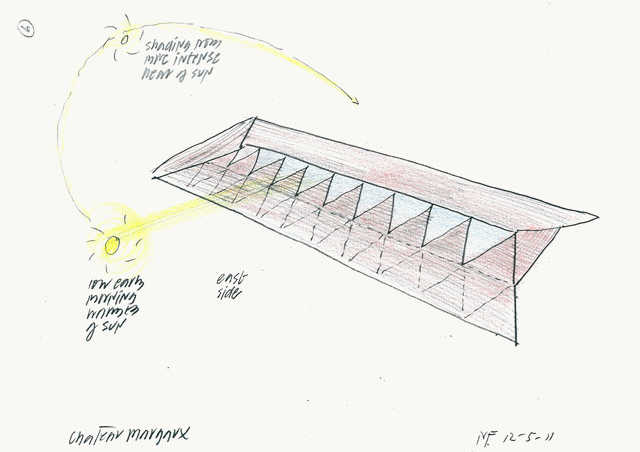 shading from
more intense
heat of sun
low early
morning
warmth
of sun
east
side
Chateau Margaux
NF 12-5-11